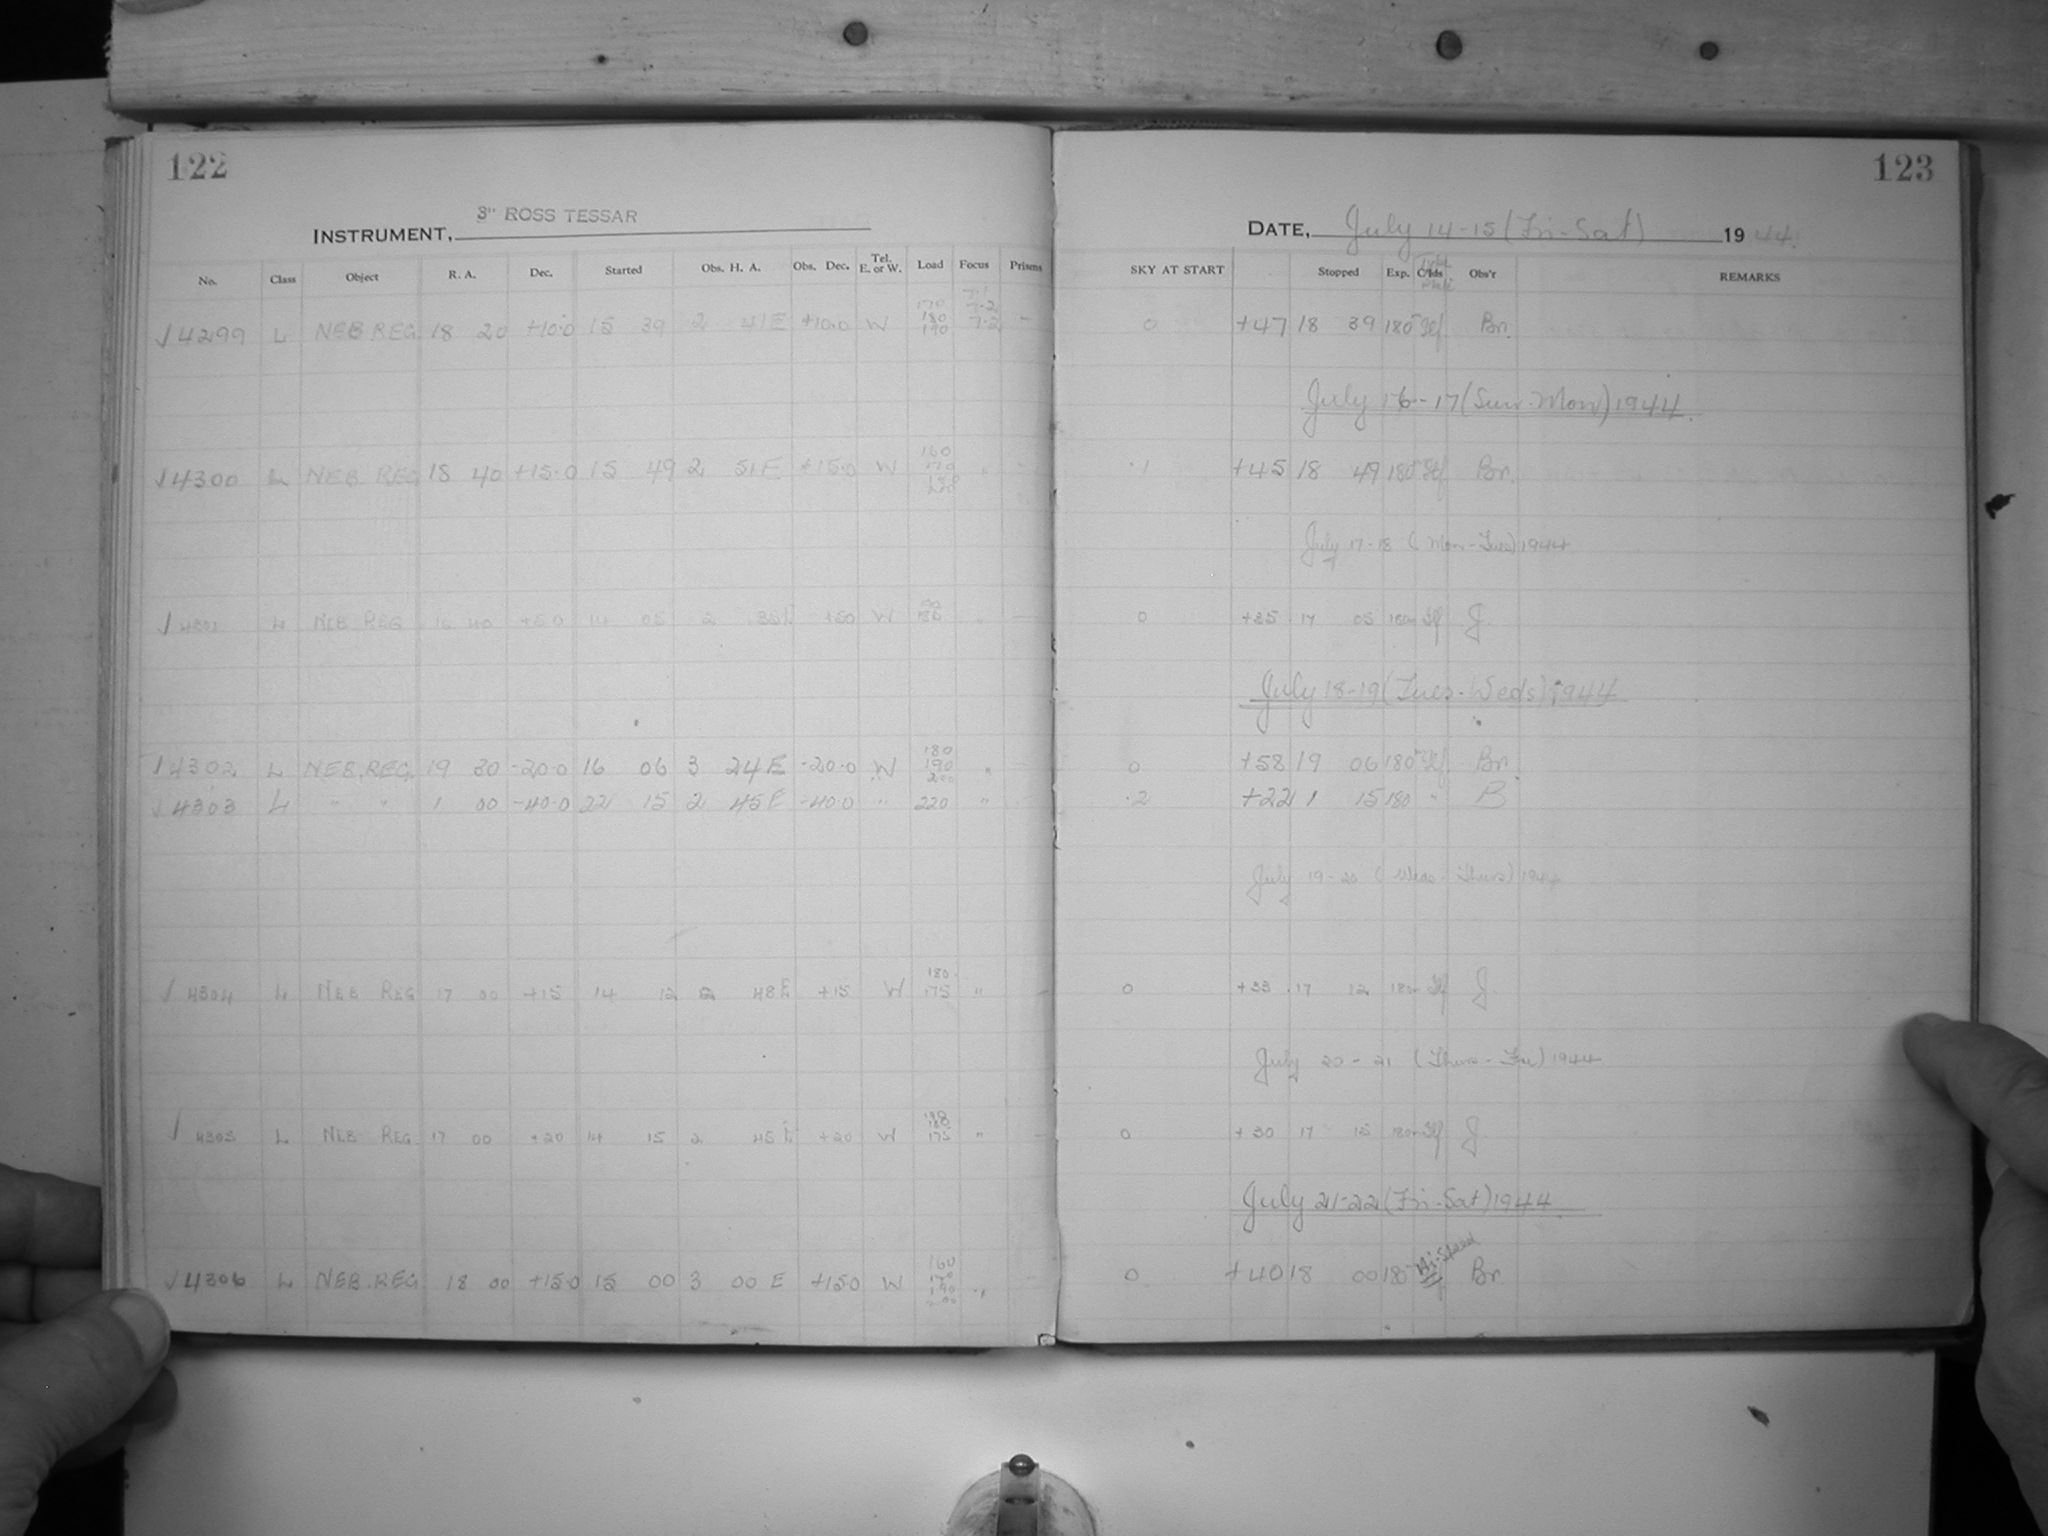 122
INSTRUMENT, 3" ROSS TESSAR
No. Class Object R. A. Dec. Started Obs. H. A. Obs. Dec. Tel. E. or W. Load Focus Prisms
√4299 L NEB REG. 18 20 +10.0 15 39 2 41E +10.0 W 170 180 190 7.2 7.2 -
√4300 L NEB REG 18 40 +15.0 15 49 2 51E +15.0 W 160 170 " -
√4301 L NEB REG 16 40 +50 14 05 2 35E +50 W 180 " -
√4302 L NEB.REG. 19 30 -20.0 16 06 3 24E -20.0 W 180 190 200 " -
√4303 L " " 1 00 -40.0 22 15 2 45E -40.0 " 220 " -
√4304 L NEB REG 17 00 +15 14 12 2 48E +15 W 180 175 " -
√4305 L NEB REG 17 00 +20 14 15 2 45E +20 W 175 " -
√4306 L NEB.REG 18 00 +15.0 15 00 3 00 E +15.0 W 160 170 190 200 " -
123
DATE, July 14-15 (Fri-Sat) 1944.
SKY AT START Stopped Exp. C'lds Plate Obs'r REMARKS
0 +47 18 39 180 Br.
July 16-17 (Sun-Mon) 1944.
.1 +45 18 49 180 Br.
July 17-18 (Mon-Tues) 1944
0 +35 17 05 180m J
July 18-19 (Tues-Weds) 1944
0 +58 19 06 180 Br.
.2 +22 1 15 180 " B
July 19-20 (Weds-Thurs) 1944
0 +33 17 12 180m J.
July 20-21 (Thurs-Fri) 1944
0 +30 17 15 180m J
July 21-22 (Fri-Sat) 1944
0 +40 18 00 18 Hi-Speed Br.